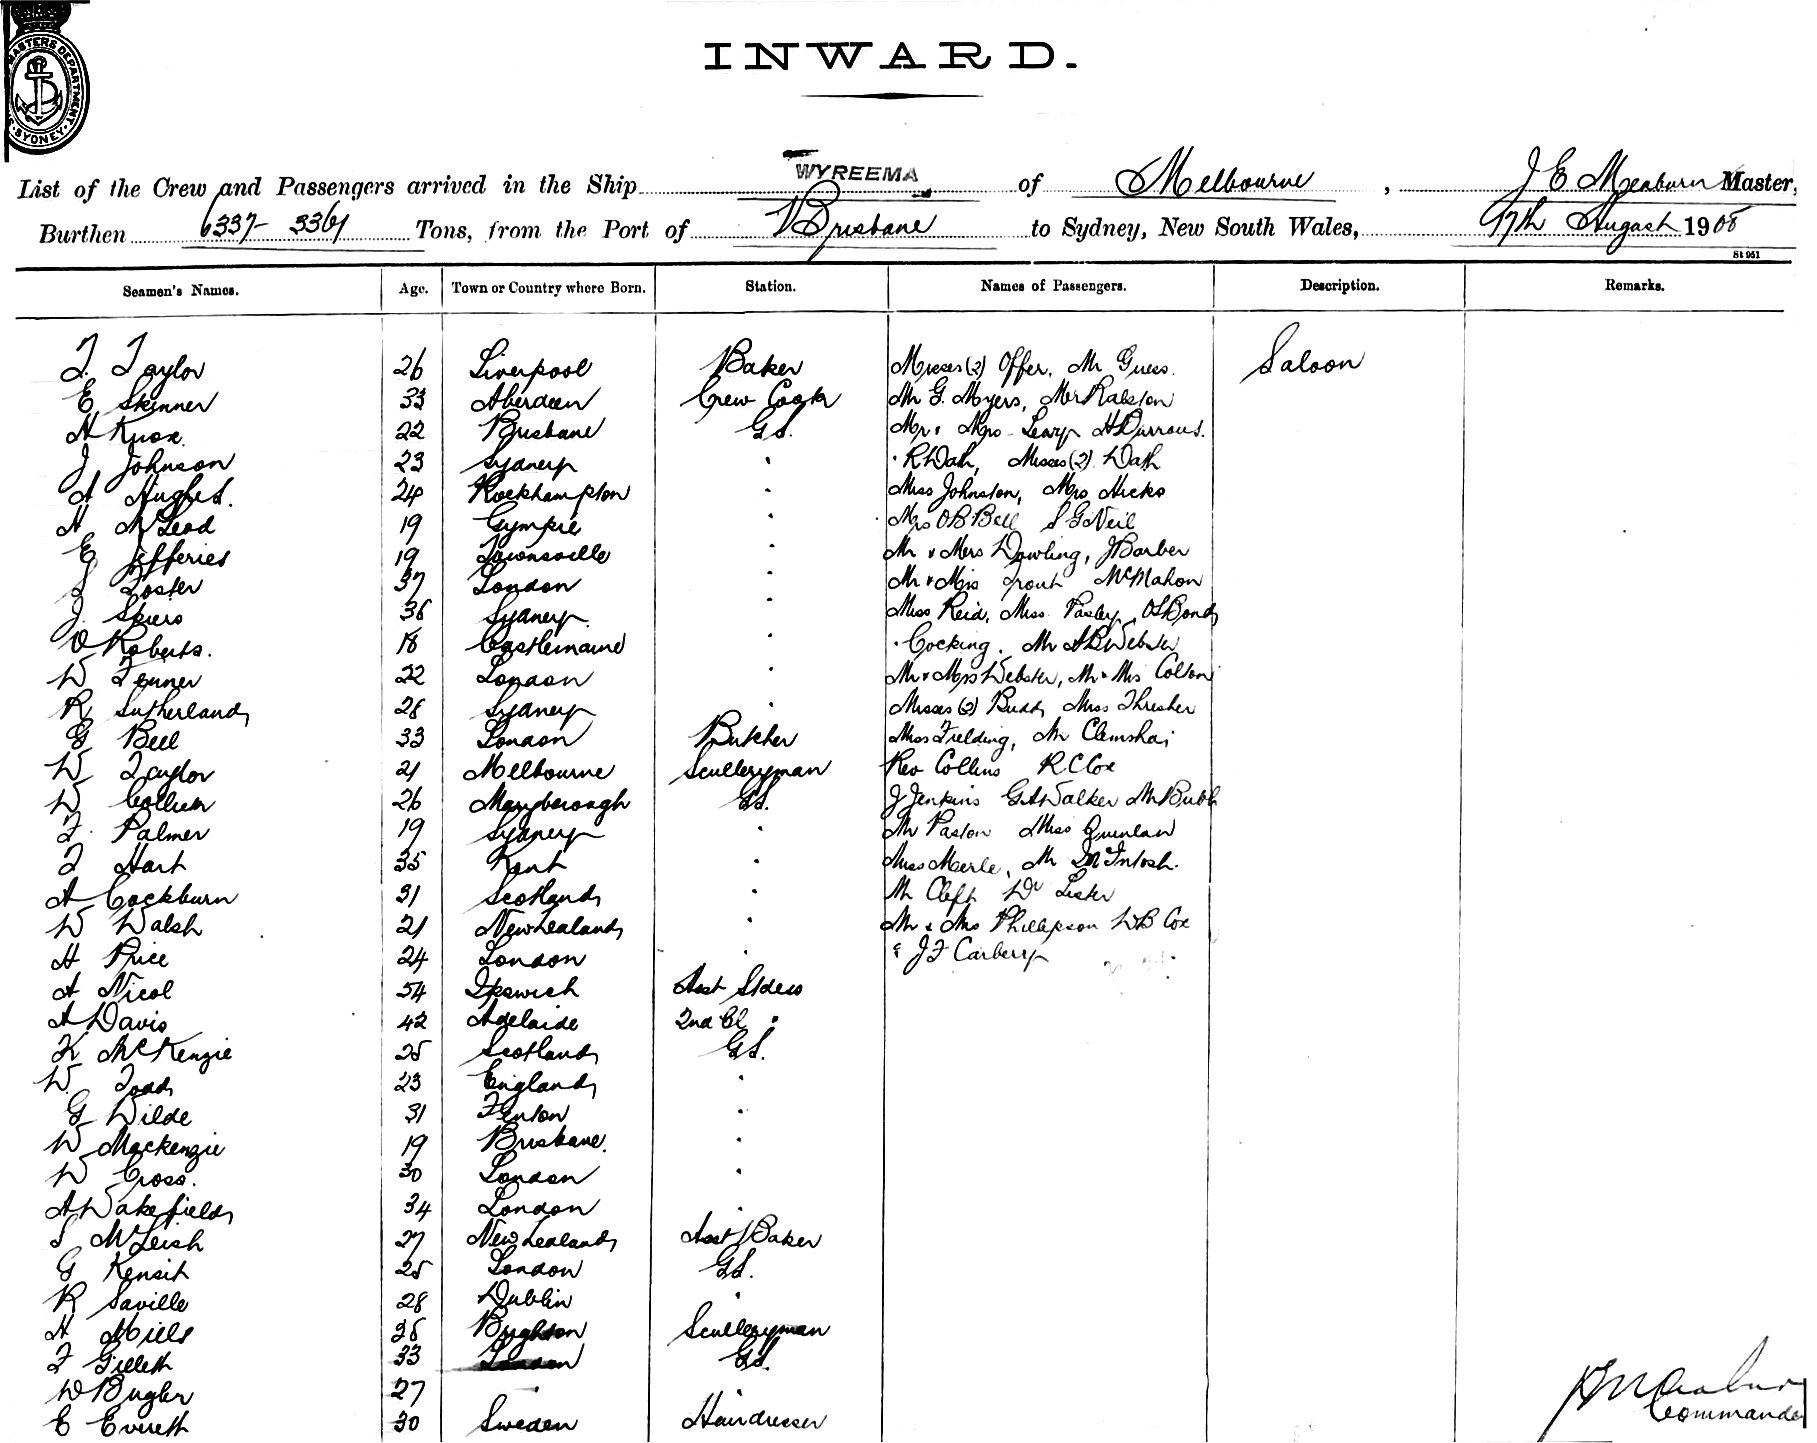 MASTERS DEPARTMENT SYDNEY
INWARD.
List of the Crew and Passengers arrived in the Ship WYREEMA of Melbourne, J E Meaburn Master,
Burthen 6337- 3361 Tons, from the Port of Brisbane to Sydney, New South Wales, 17th August 1908
St 951
Seamen's Names. Age. Town or Country where Born. Station. Names of Passengers. Description. Remarks.
T. Taylor 26 Liverpool Baker Misses (2) Offer, Mr Guess. Saloon
E Skinner 33 Aberdeen Crew Cook Mr G. Myers, Mr Ralston
H Knox. 22 Brisbane G.S. Mr & Mrs Leary H Burrows.
J Johnson 23 Sydney " " R Wath, Misses (2) Wath
A Hughes. 24 Rockhampton " Miss Johnston, Mrs Hicks
H McLeod 19 Gympie " Mrs O B Bell S G Neil
E Jefferies 19 Townsville " Mr & Mrs Dowling, J Barber
S Foster 37 London " Mr & Mrs Trout McMahon
J. Skiers 36 Sydney " Miss Reid, Miss Pasley, O S Bond
O Roberts. 18 Castlemaine " " Cocking. Mr A B Webster
W Fenner 22 London " Mr & Mrs Webster, Mr & Mrs Colton
R Sutherland 28 Sydney " Misses (2) Budd, Miss Thresher
G Bell 33 London Butcher Miss Fielding, Mr Clemshai
W Taylor 21 Melbourne Sculleryman Rev Collins R C Cox
W Collum 26 Maryborough G.S. J Jenkins G A Walker Mr Bubb
F. Palmer 19 Sydney " Mr Paston Miss Quinlan
F Hart 35 Kent " Miss Merle, Mr McIntosh.
A Cockburn 31 Scotland " Mr Cleft Dr Lister
W Walsh 21 New Zealand " Mr & Mrs Phillipson W B Cox
H Price 24 London " & J F Carbery
A Nicol 54 Ipswich Asst Stdess
A Davis 42 Adelaide 2nd Cl "
K McKenzie 25 Scotland G.S.
W. Todd 23 England "
G Wilde 31 Fenton "
W Mackenzie 19 Brisbane. "
W Cross. 30 London "
A Wakefield 34 London "
S McLeish 27 New Zealand Asst Baker
G Kensit 25 London G.S.
R Saville 28 Dublin "
H Mills 35 Brighton Sculleryman
F Gilleth 33 London G.S.
W Bugler 27 "
E Everett 30 Sweden Hairdresser
J E Meaburn
Commander